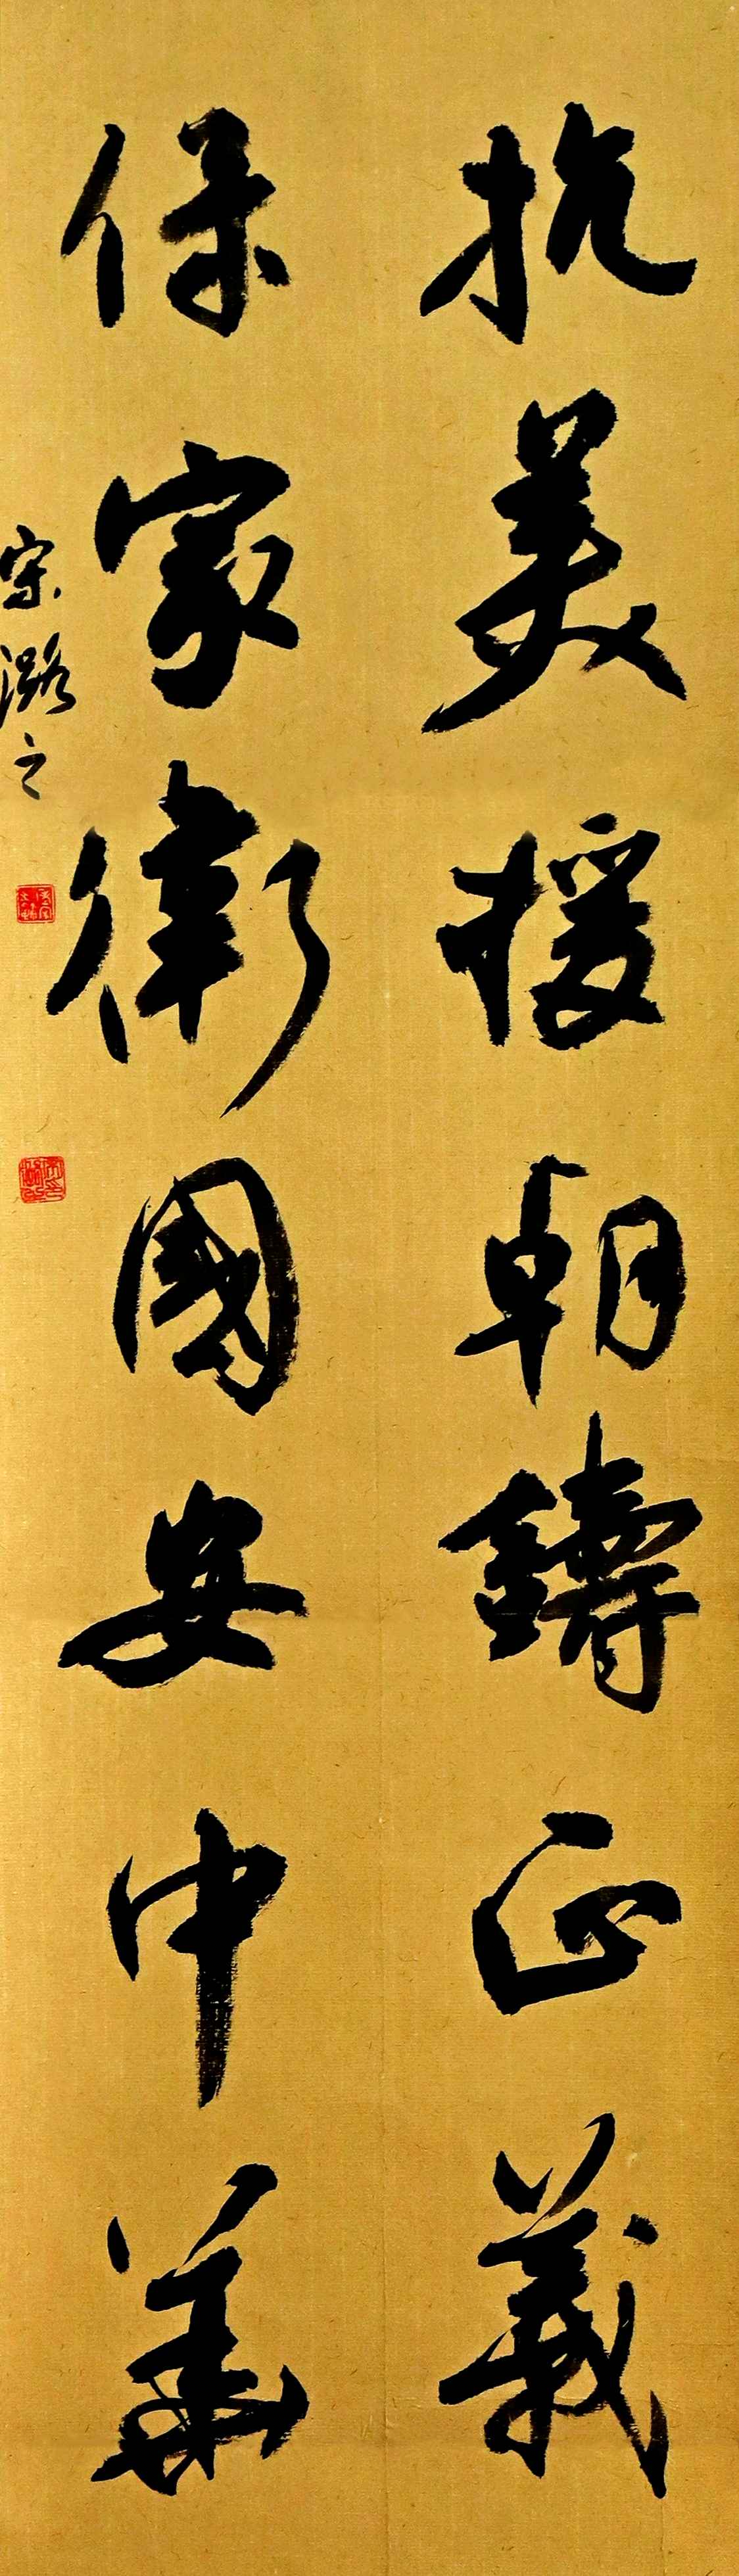 抗美援朝鑄正義
保家衛國安中華
宋潞之